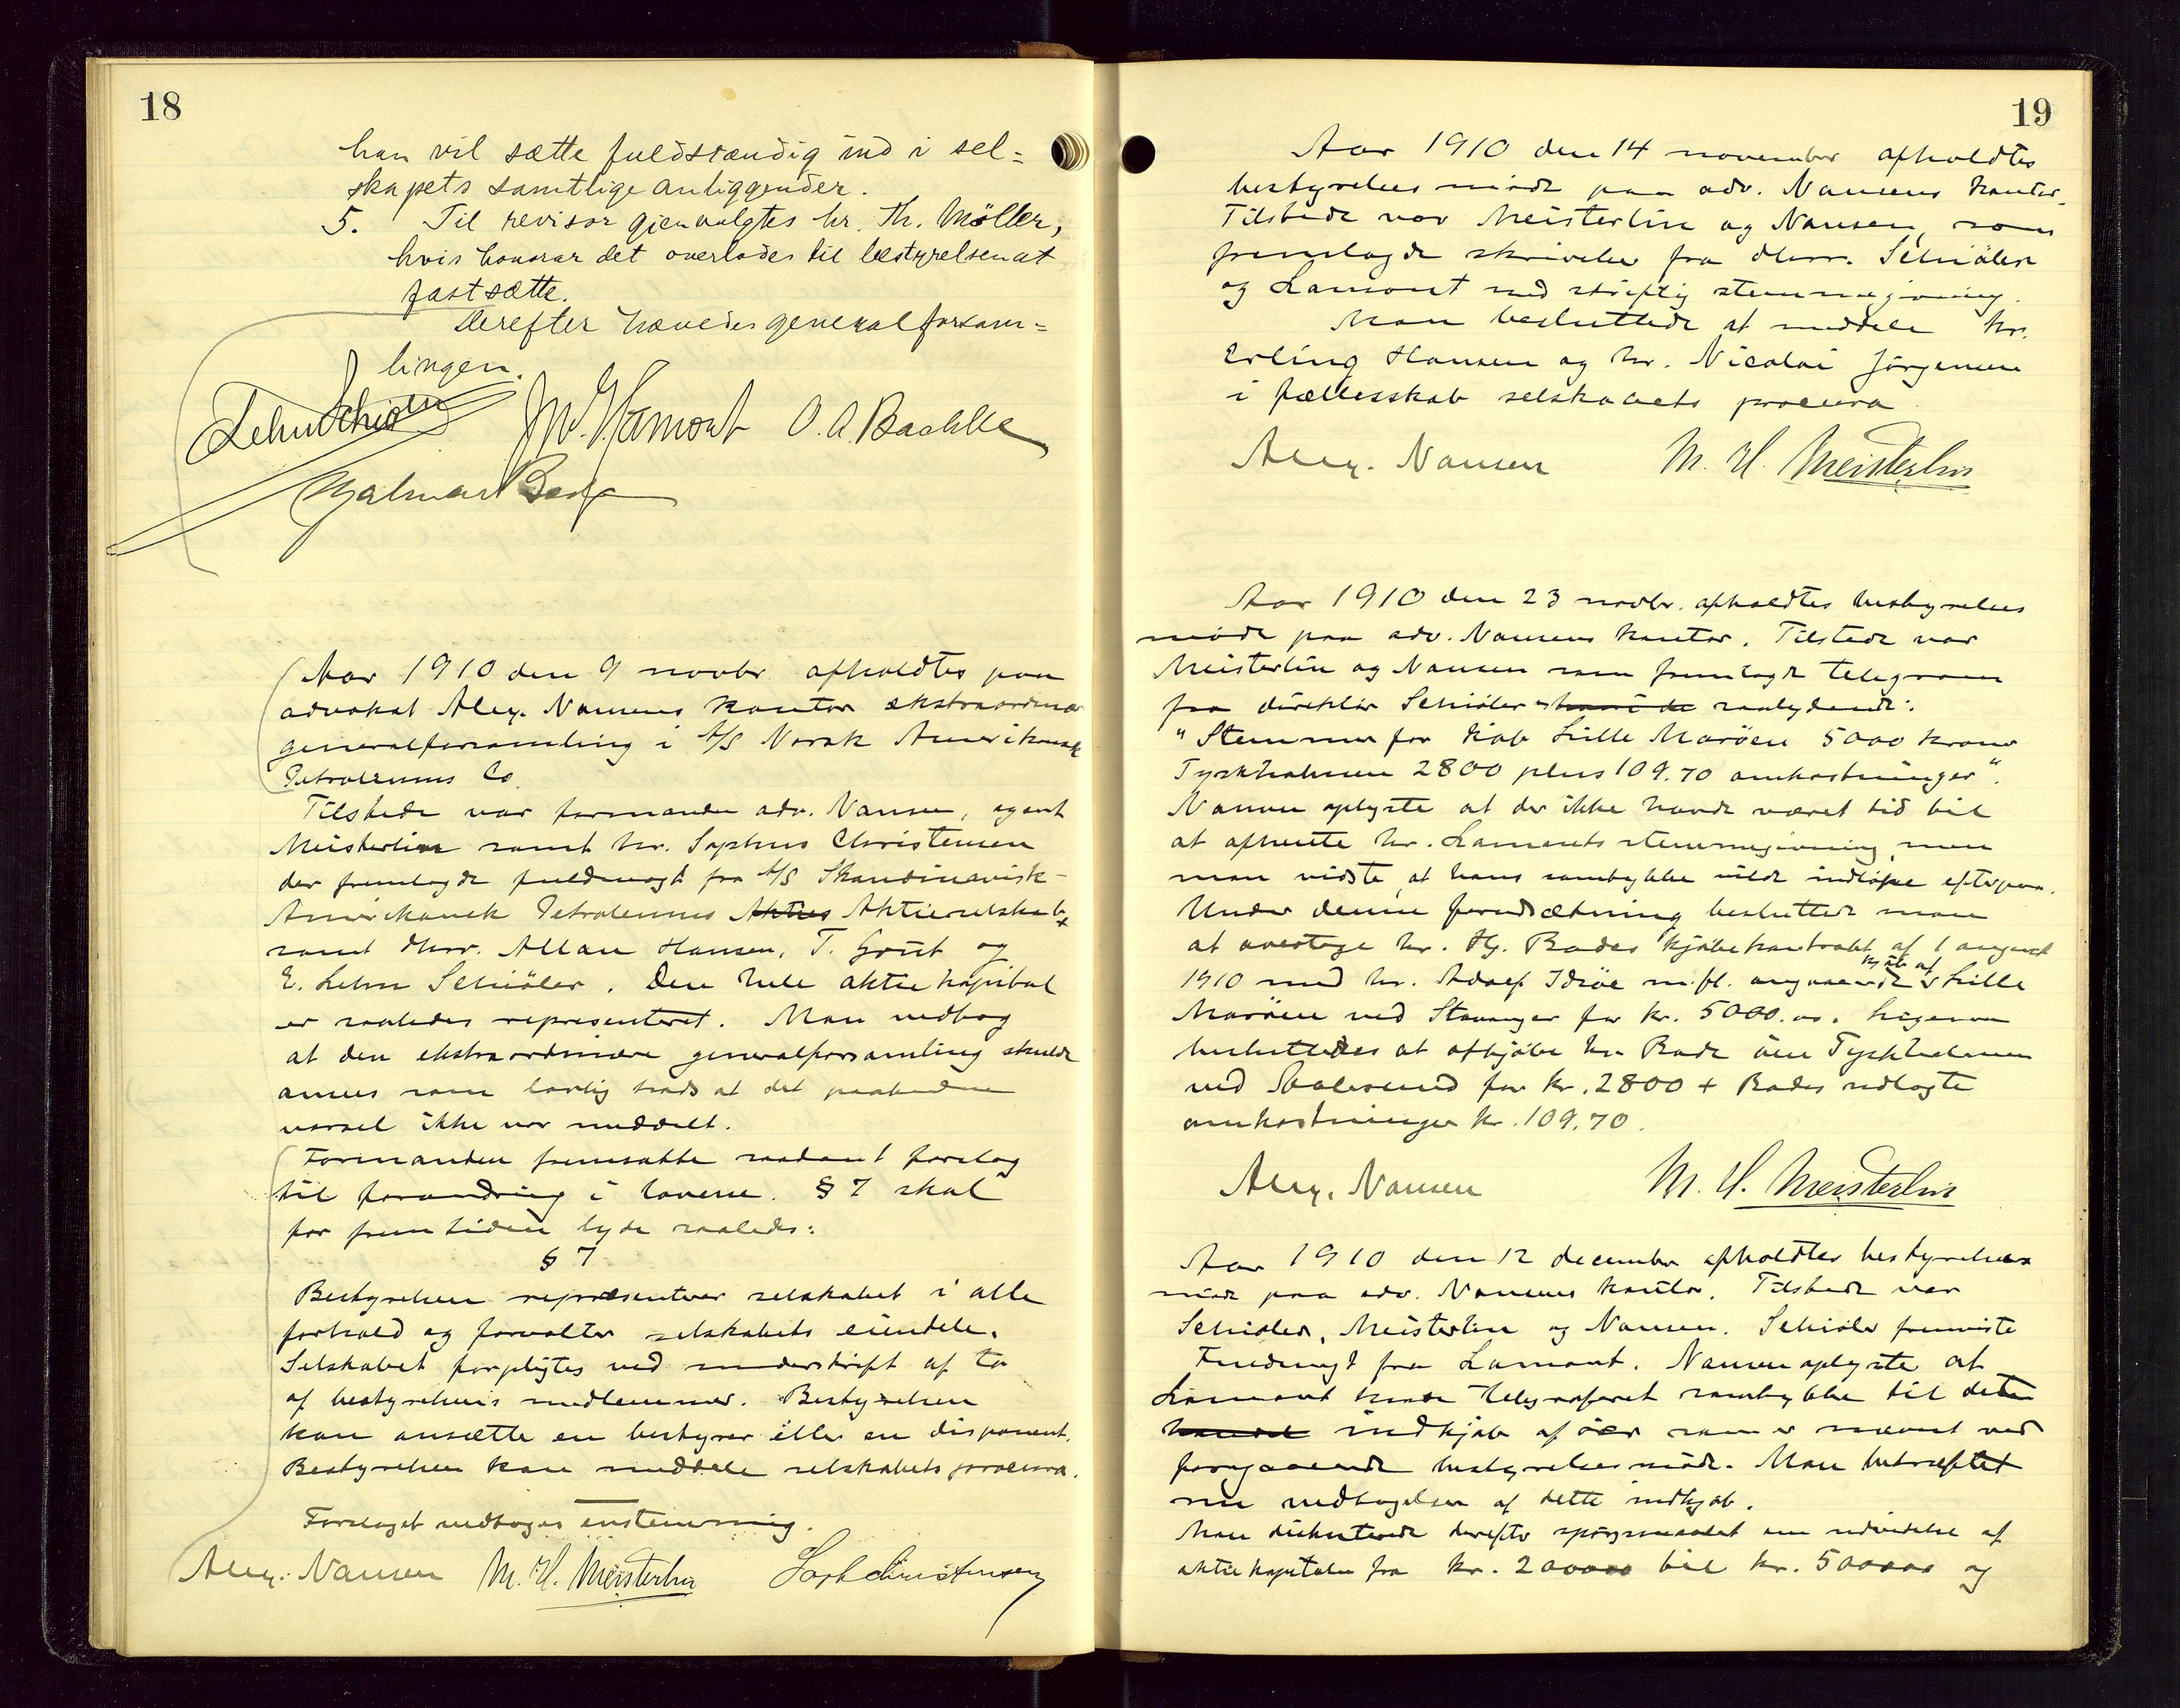 18
han vil sætte fuldstændig ind i sel=
skapets samtlige anliggender.
5. Til revisor gjenvalgtes hr. Th. Møller,
hvis honorar det overlodes til bestyrelsen at
fastsætte.
Derefter hævedes generalforsam=
lingen.
Lehn Schiøler J. W. Lamont O. A. Bachke
Hjalmar Berg
Aar 1910 den 9 novbr. afholdtes paa
advokat Alex. Nansens kontor ekstraordinær
generalforsamling i A/S Norsk Amerikansk
Petroleums Co.
Tilstede var formanden adv. Nansen, agent
Meisterlin samt hr. Sophus Christensen
der fremlagde fuldmagt fra A/S Skandinavisk-
Amerikansk Petroleums Akties Aktieselskab
samt dhrr. Allan Hansen, T. Grut og
E. Lehn Schiøler. Den hele aktiekapital
er saaledes representeret. Man vedtog
at den ekstraordinære generalforsamling skulde
ansees som lovlig trods at det paabudne
varsel ikke var meddelt.
Formanden fremsatte saadant forslag
til forandring i lovene. § 7 skal
for fremtiden lyde saaledes:
§ 7
Bestyrelsen repræsenterer selskabet i alle
forhold og forvalter selskabets eiendele.
Selskabet forpligtes ved underskrift af to
af bestyrelsens medlemmer. Bestyrelsen
kan ansætte en bestyrer eller en disponent.
Bestyrelsen kan meddele selskabets procura.
Forslaget vedtoges enstemmig.
Alex. Nansen M. H. Meisterlin Soph Christensen
19
Aar 1910 den 14 november afholdtes
bestyrelsesmøde paa adv. Nansens kontor.
Tilstede var Meisterlin og Nansen, som
fremlagde skrivelse fra dhrr. Schiøler
og Lamont med skriftlig stemmegivning.
Man besluttede at meddele hr.
Erling Hansen og hr. Nicolai Jørgensen
i fællesskab selskabets procura
Alex. Nansen M. H. Meisterlin
Aar 1910 den 23 novbr. afholdtes bestyrelses
møde paa adv. Nansens kontor. Tilstede var
Meisterlin og Nansen som fremlagde telegram
fra direktør Schiøler saalydende:
"Stemmer for kjøb Lille Marøen 5000 kroner
Tyskholmen 2800 plus 109.70 omkostninger".
Nansen oplyste at der ikke havde været tid til
at afvente hr. Lamonts stemmegivning, men
man vidste, at hans samtykke vilde indløpe efterpaa.
Under denne forudsætning besluttede man
at overtage hr. Hj. Bades kjøbekontrakt af 1 august
1910 med hr. Adolf Idsøe m.fl. angaaende kjøb af Lille
Marøen ved Stavanger for kr. 5000.00. Ligesaa
besluttedes at afkjøbe hr. Bade øen Tyskholmen
ved Aalesund for kr. 2800 + Bades udlagte
omkostninger kr. 109.70.
Alex. Nansen M. H. Meisterlin
Aar 1910 den 12 december afholdtes bestyrelses
møde paa adv. Nansens kontor. Tilstede var
Schiøler, Meisterlin og Nansen. Schiøler fremviste
Fuldmagt fra Lamont. Nansen oplyste at
Lamont havde telegraferet samtykke til det
indkjøb af øer som er nævnt ved
foregaaende bestyrelsesmøde. Man betræftet
nu vedtagelsen af dette indkjøb.
Man diskuterede derefter spørgsmaalet om udvidelse af
aktiekapitalen fra kr. 200000 til kr. 500000 og